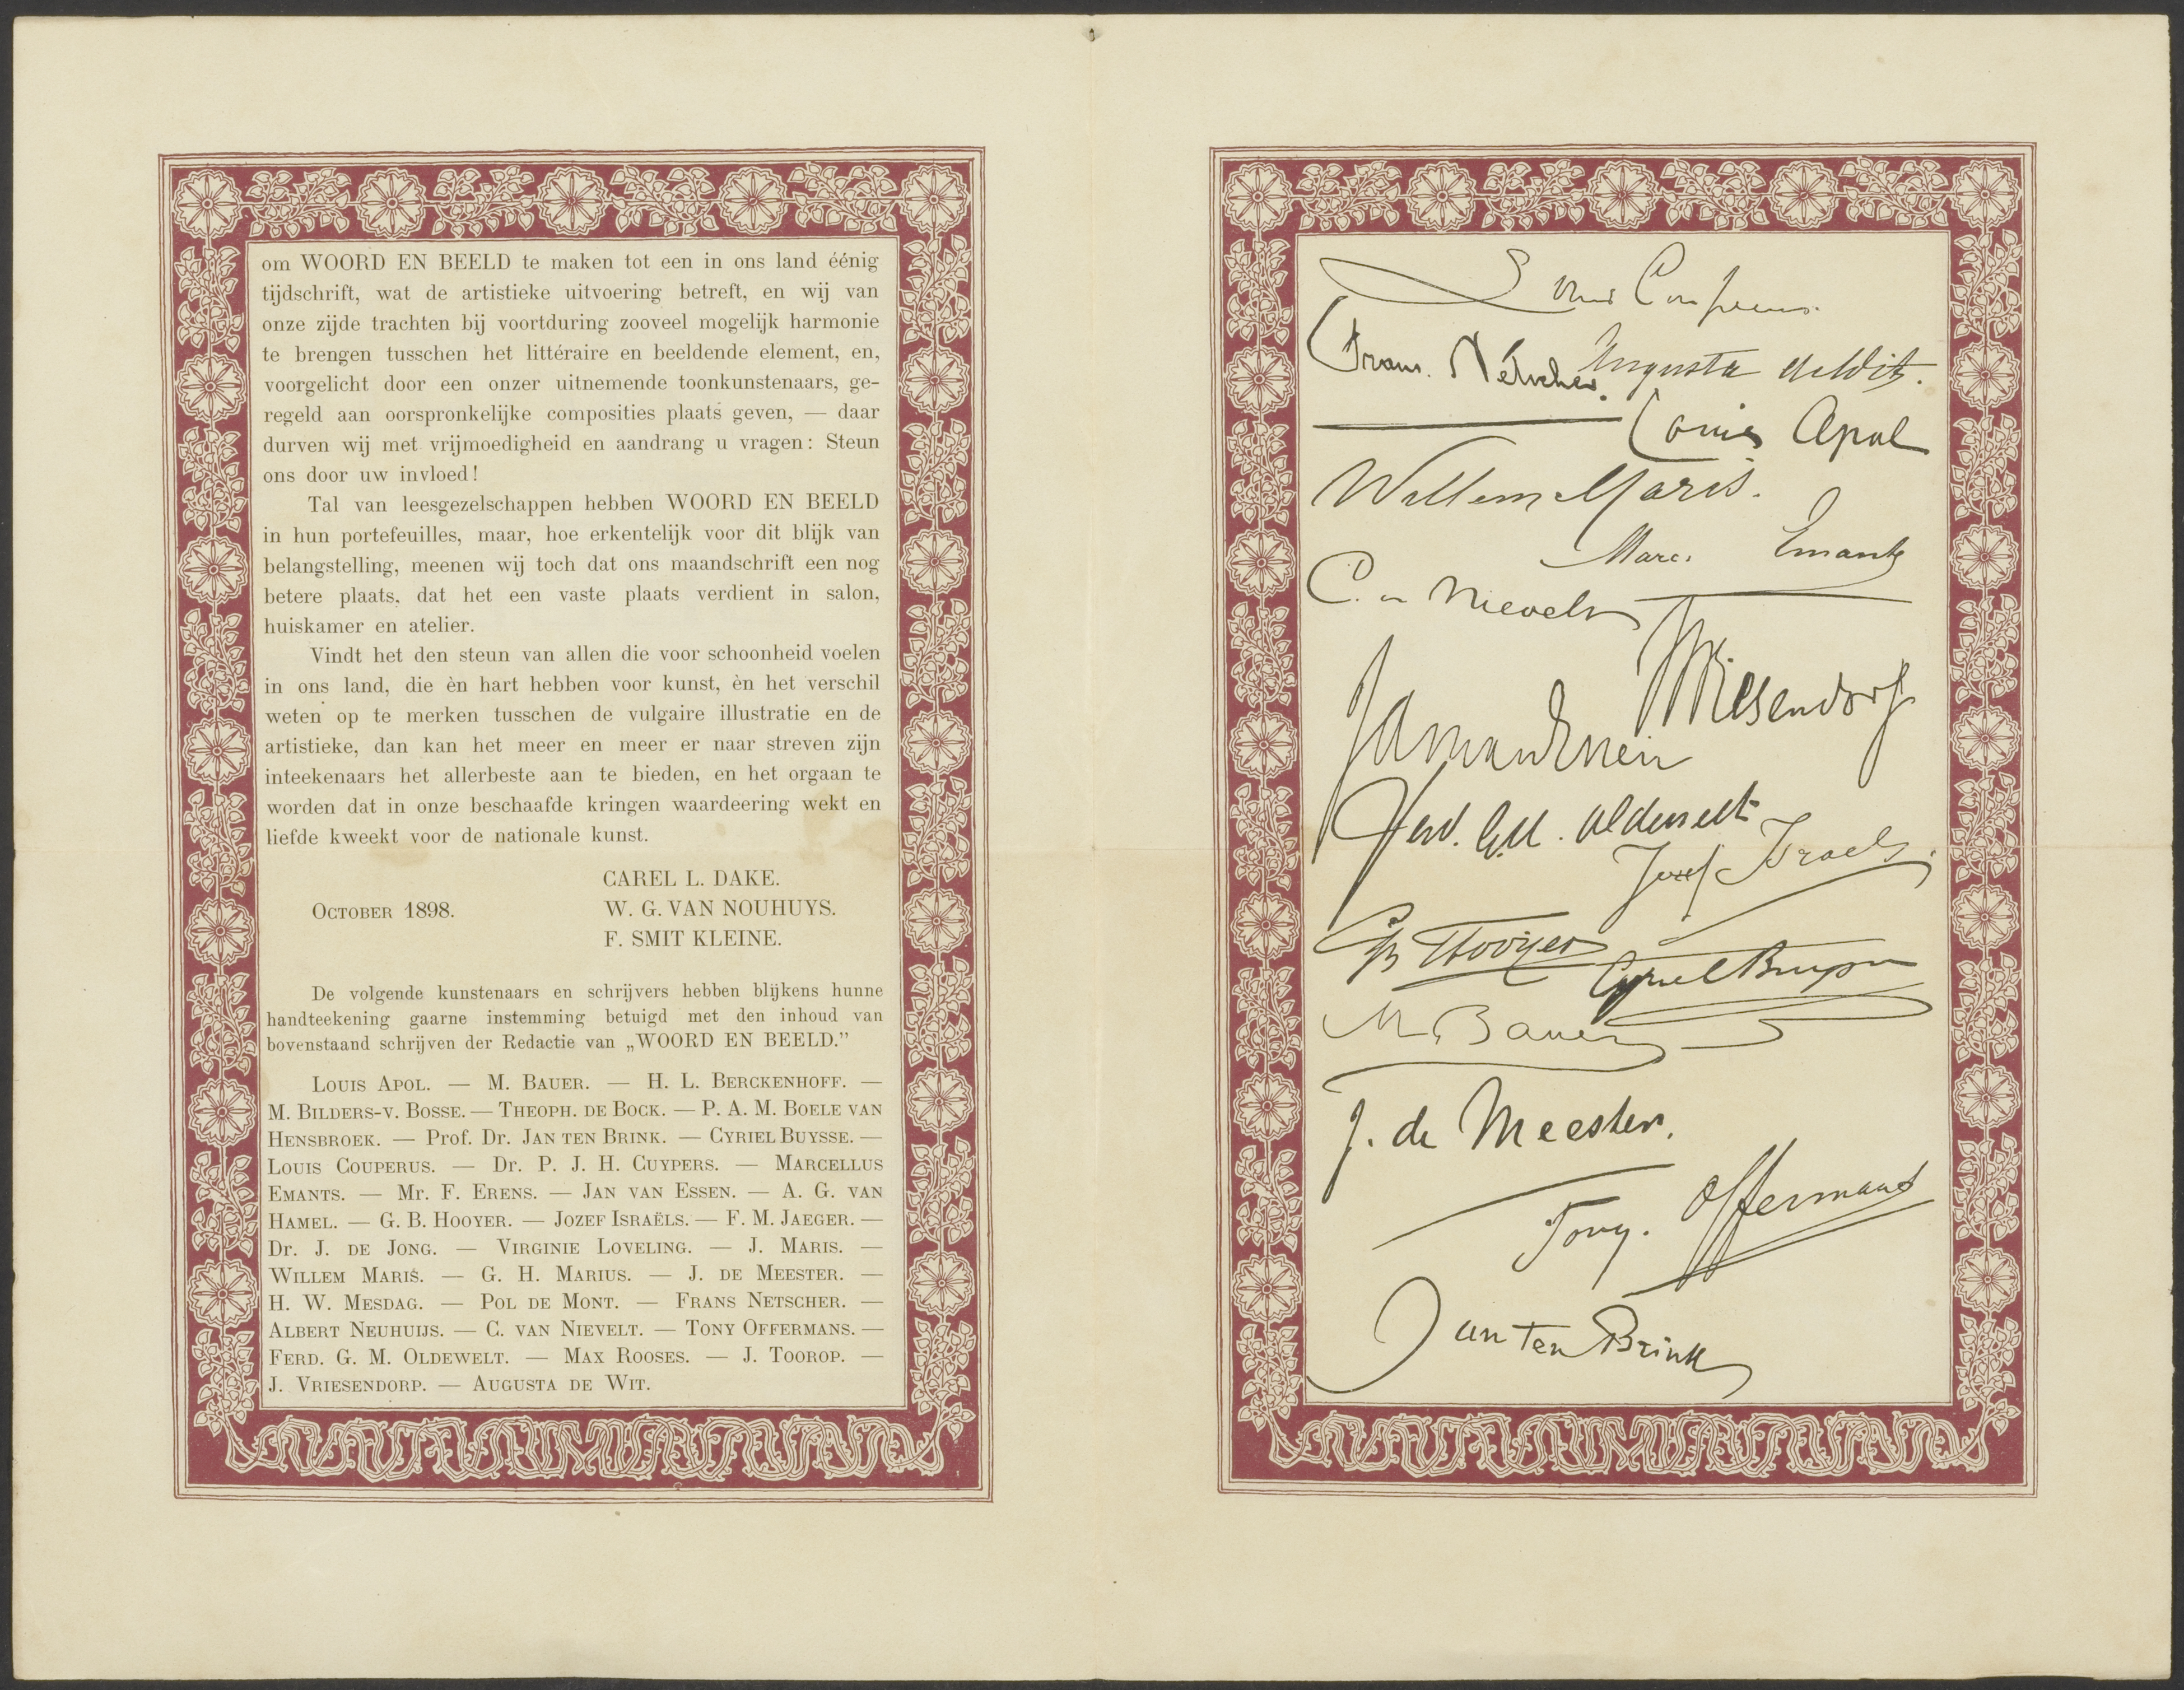 om WOORD EN BEELD te maken tot een in ons land éénig
tijdschrift, wat de artistieke uitvoering betreft, en wij van
onze zijde trachten bij voortduring zooveel mogelijk harmonie
te brengen tusschen het littéraire en beeldende element, en,
voorgelicht door een onzer uitnemende toonkunstenaars, ge-
regeld aan oorspronkelijke composities plaats geven, — daar
durven wij met vrijmoedigheid en aandrang u vragen: Steun
ons door uw invloed!
Tal van leesgezelschappen hebben WOORD EN BEELD
in hun portefeuilles, maar, hoe erkentelijk voor dit blijk van
belangstelling, meenen wij toch dat ons maandschrift een nog
betere plaats, dat het een vaste plaats verdient in salon,
huiskamer en atelier.
Vindt het den steun van allen die voor schoonheid voelen
in ons land, die èn hart hebben voor kunst, èn het verschil
weten op te merken tusschen de vulgaire illustratie en de
artistieke, dan kan het meer en meer er naar streven zijn
inteekenaars het allerbeste aan te bieden, en het orgaan te
worden dat in onze beschaafde kringen waardeering wekt en
liefde kweekt voor de nationale kunst.
CAREL L. DAKE.
OCTOBER 1898. W. G. VAN NOUHUYS.
F. SMIT KLEINE.
De volgende kunstenaars en schrijvers hebben blijkens hunne
handteekening gaarne instemming betuigd met den inhoud van
bovenstaand schrijven der Redactie van „WOORD EN BEELD.”
LOUIS APOL. — M. BAUER. — H. L. BERCKENHOFF. —
M. BILDERS-V. BOSSE. — THEOPH. DE BOCK. — P. A. M. BOELE VAN
HENSBROEK. — Prof. Dr. JAN TEN BRINK. — CYRIEL BUYSSE. —
LOUIS COUPERUS. — Dr. P. J. H. CUYPERS. — MARCELLUS
EMANTS. — Mr. F. ERENS. — JAN VAN ESSEN. — A. G. VAN
HAMEL. — G. B. HOOYER. — JOZEF ISRAËLS. — F. M. JAEGER. —
Dr. J. DE JONG. — VIRGINIE LOVELING. — J. MARIS. —
WILLEM MARIS. — G. H. MARIUS. — J. DE MEESTER. —
H. W. MESDAG. — POL DE MONT. — FRANS NETSCHER. —
ALBERT NEUHUIJS. — C. VAN NIEVELT. — TONY OFFERMANS. —
FERD. G. M. OLDEWELT. — MAX ROOSES. — J. TOOROP. —
J. VRIESENDORP. — AUGUSTA DE WIT.
Louis Couperus.
Frans Netscher.
Augusta de Wit.
Louis Apol
Willem Maris.
Marc. Emants
C. v. Nievelt
J Vriesendorp
Jan van Essen
Ferd. G.M. Oldewelt
Jozef Israels.
GB Hooyer
Cyriel Buysse
M. Bauer
J. de Meester.
Tony. Offermans
Jan ten Brink